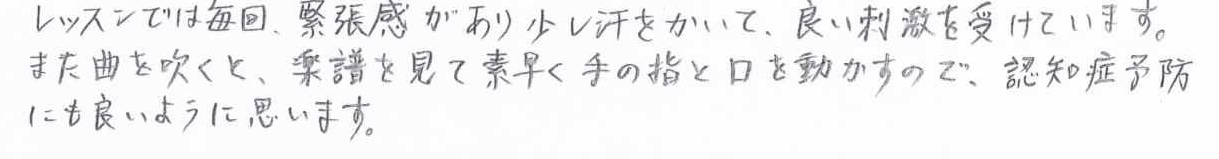 レッスンでは毎回、緊張感があり少し汗をかいて、良い刺激を受けています。
また曲を吹くと、楽譜を見て素早く手の指と口を動かすので、認知症予防
にも良いように思います。